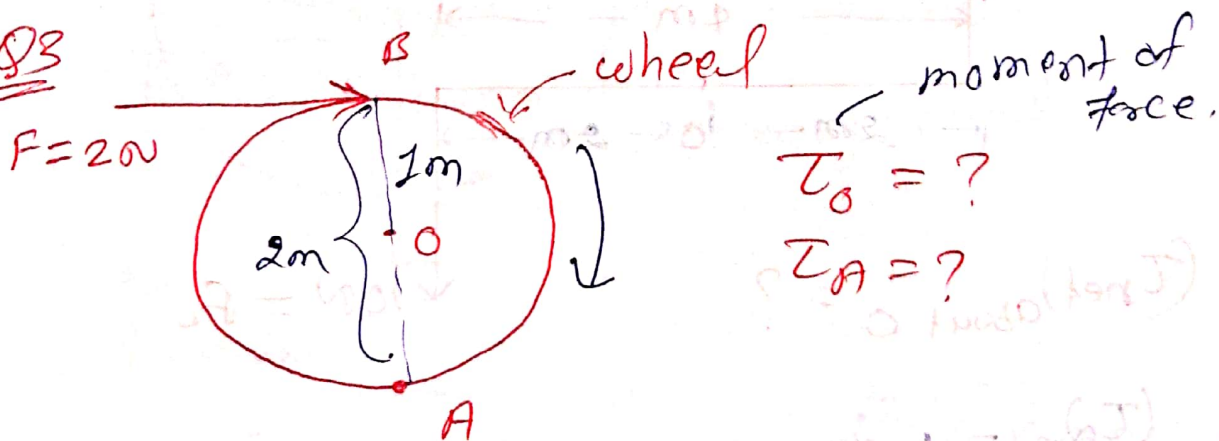 Q3
B
wheel
moment of
force.
F=2N
1m
2m
O
τ₀ = ?
τ_A = ?
A